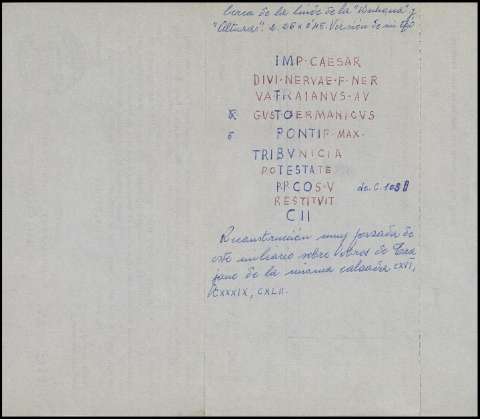 Cerca de la linde de la "Dehesa" y
"Alturas". 2.25 x 0'45. Versión de mi
IMP-CAESAR
DIVI-NERVAE-F-NER
VA TRAIANVS-AV
GVSTOERMANICVS
PONTIF-MAX-
TRIBVNICIA
POTESTATE
PPCOS-V
de. C. 103
RESTITVIT
CII
Reconstrucción muy forzada de
este miliario sobre otros de Tra
jano de la misma calzada CXVI,
CXXXIX, CXLII.